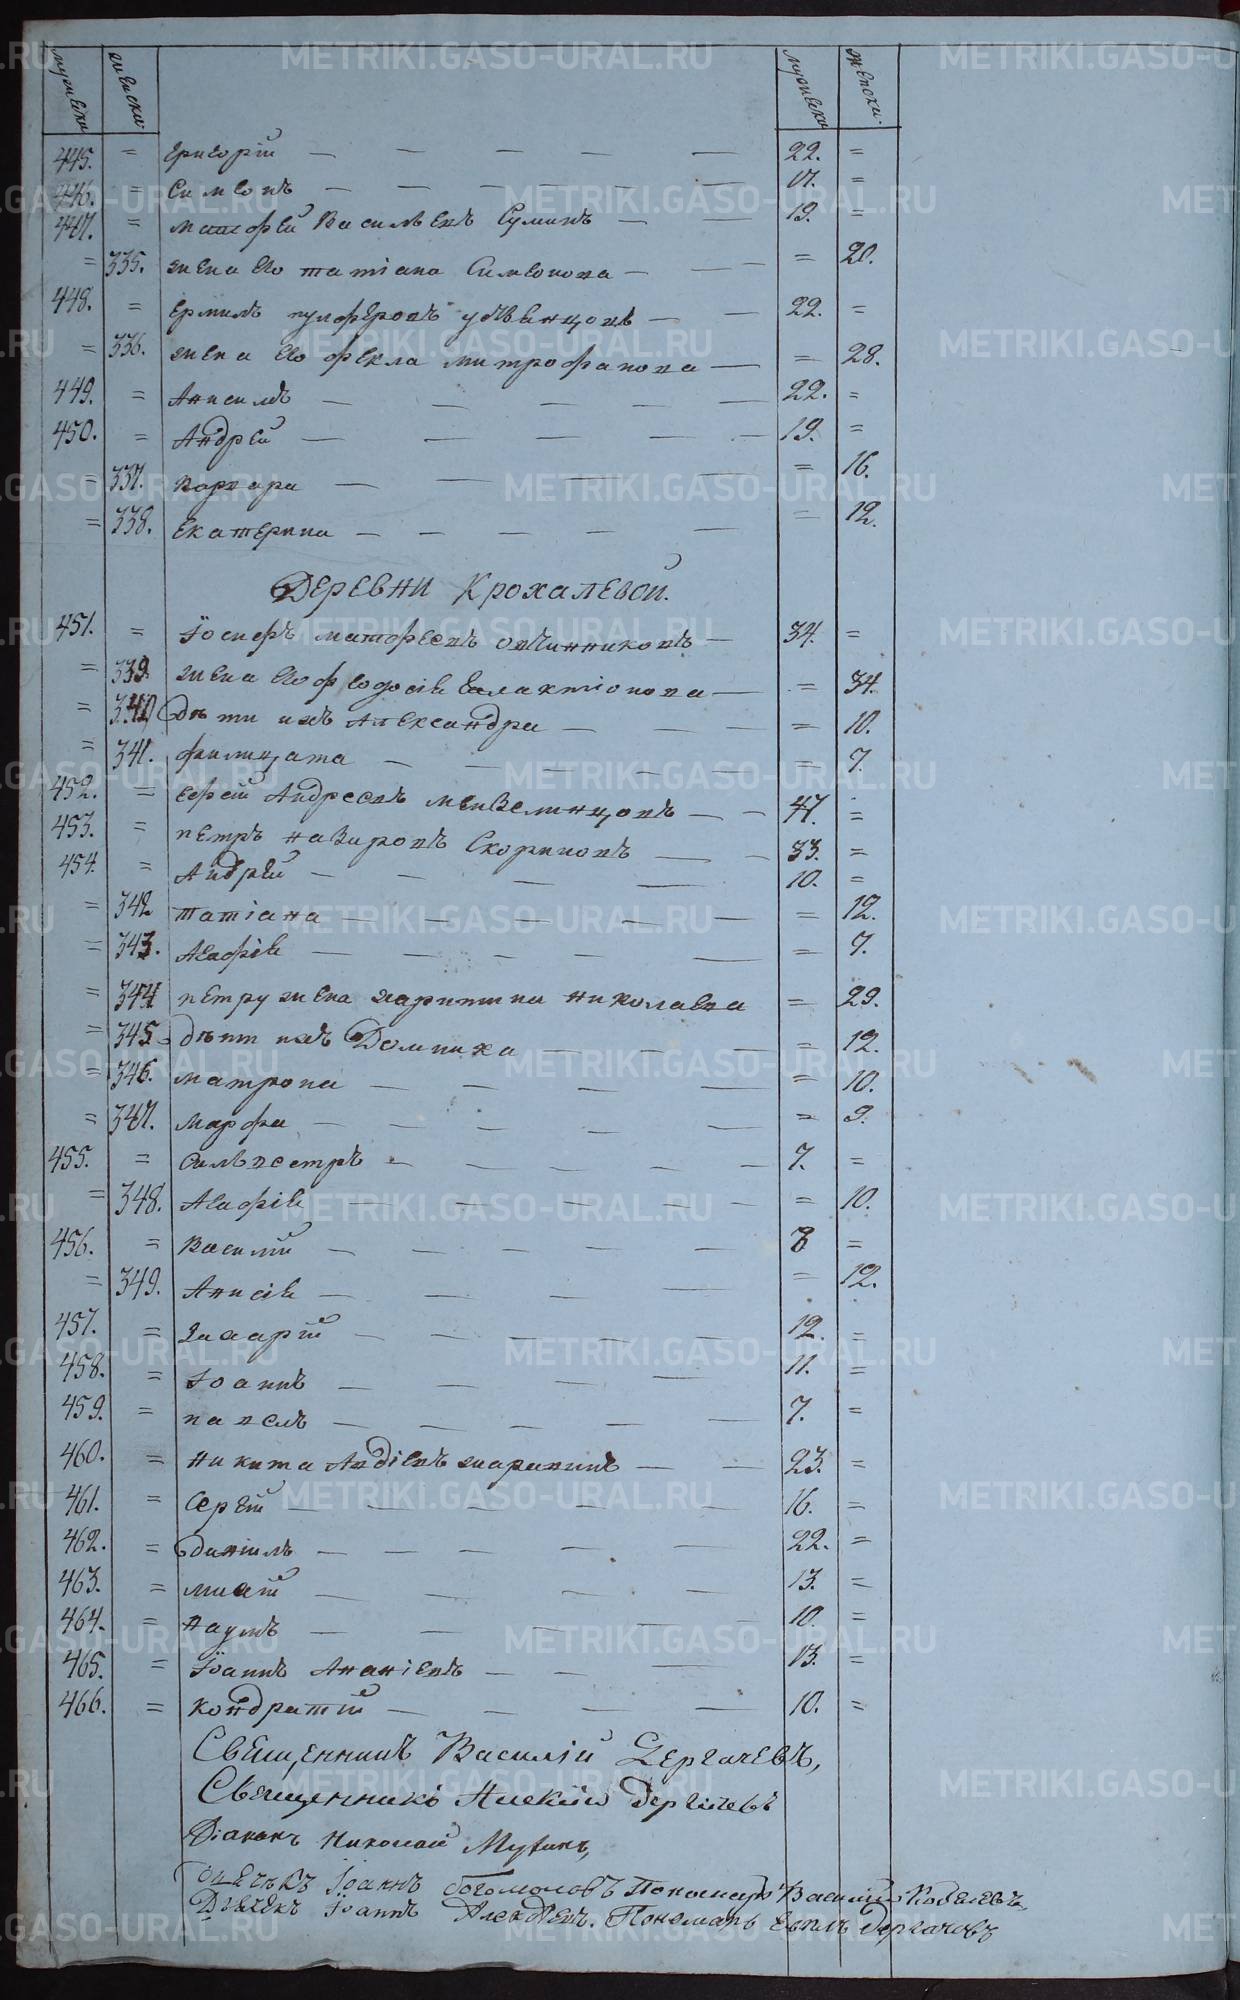 мужеска женска мужеска женска
445. = Григорій — 22. =
446. = Симеонъ — 17. =
447. = Матфей Васильевъ Суминъ — 19. =
= 335. жена его Татіана Симеонова — = 20.
448. = Ермилъ — 22. =
= 336. жена его Фекла Митрофанова — = 28.
449. = Анисимъ — 22. =
450. = Андрей — 19. =
= 337. Варвара — = 16.
= 338. Екатерина — = 12.
Деревни Крохалевой.
451. = Іосифъ Матфеевъ Овчинниковъ — 34. =
= 339. жена его Феодосія Галактіонова — = 34.
= 340. дѣти ихъ Александра — = 10.
= 341. Филицата — = 7.
452. = Андреевъ — 47. =
453. = Петръ Назаровъ Скориновъ — 33. =
454. = Андрей — 10. =
= 342. Татіана — = 12.
= 343. Агафія — = 7.
= 344. Петру жена Харитина Николаева = 29.
= 345. дѣти ихъ Домника — = 12.
= 346. Матрона — = 10.
= 347. Марфа — = 9.
455. = Сильвестръ — 7. =
= 348. Агафія — = 10.
456. = Василій — 8 =
= 349. Анисія — = 12.
457. = — 12. =
458. = Іоаннъ — 11. =
459. = Павелъ — 7. =
460. = Никита Авдіевъ — 23. =
461. = Сергій — 16. =
462. = Даніилъ — 22. =
463. = — 13. =
464. = Наумъ — 10. =
465. = Іоаннъ Ананіевъ — 13. =
466. = Кондратій — 10. =
Священникъ Василій Дергачевъ,
Священникъ Алексій Дергачевъ
Діаконъ Николай
Дьячекъ Іоаннъ Богомоловъ Пономарь Василій Кобелевъ
Дьячекъ Іоаннъ Пономарь Дергачовъ
METRIKI.GASO-URAL.RU